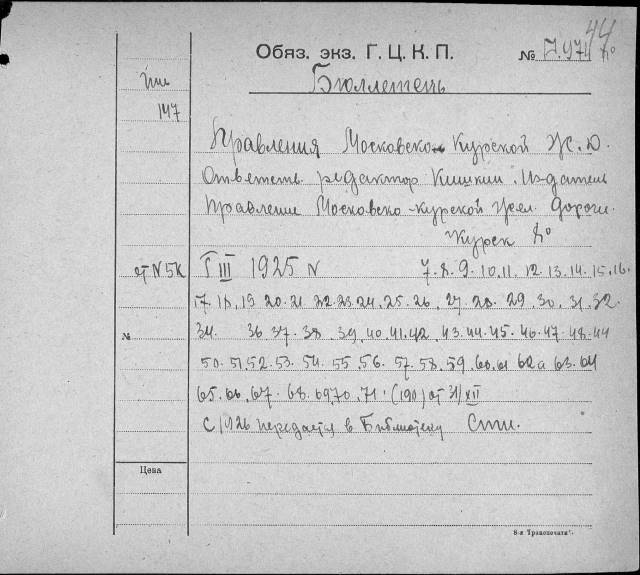 44
Обяз. экз. Г. Ц. К. П. №
Бюллетень
147
Правления Московско-Курской Ж. Д.
Ответств. редактор Кишкин. Издатель
Правление Московско-Курской Жел. Дороги.
Курск
от N 5к
III 1925 N 7.8.9.10.11.12.13.14.15.16.
17 18.19 20.21 22.23.24.25.26.27.28.29.30.31.32.
№ 34. 36 37.38.39.40.41.42.43.44.45.46.47.48.49
50.51.52.53.54.55.56.57.58.59.60.61 62а 63.64
65.66.67.68.69 70.71.(190) от 31/XII
С 1/1 26 передается в Библиотеку
Цена
8-я "Транспечати".